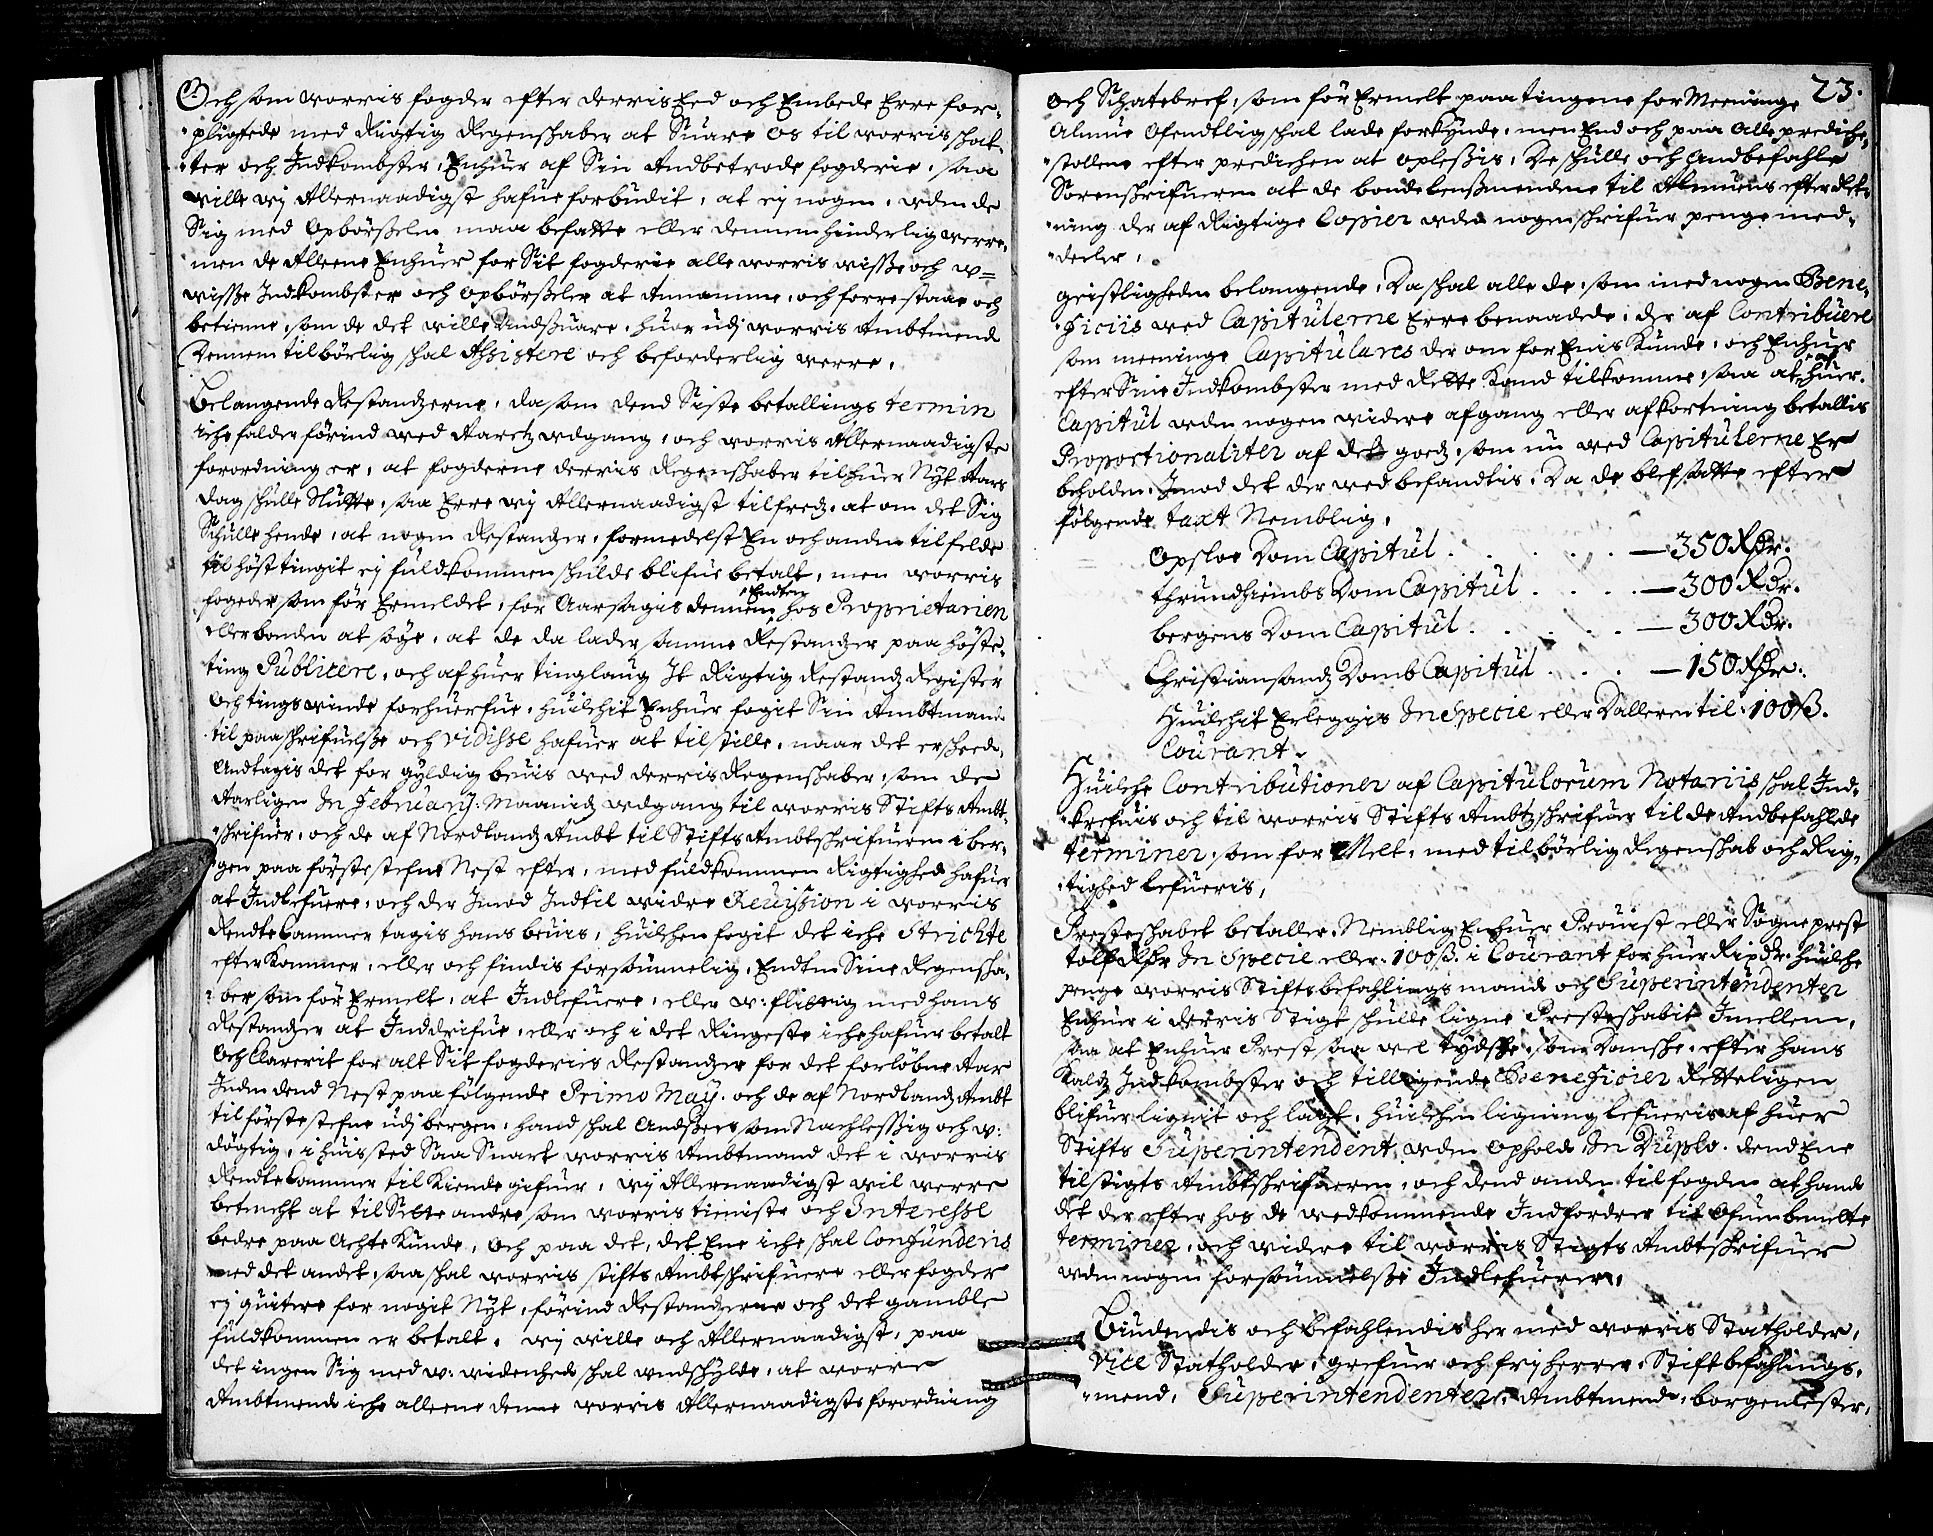 Och som worris fogder efter derris Eed och Embede Erre for-
pligtede med Rigtig Regenschaber at Suare os til worris skat-
ter och Indkombster, Enhuer af Sin Andbetrode fogderie, saa
wille wij Allernaadigst hafue forbudit, at ej nogen, uden de
Sig med Opbörßelen maa befatte eller dennem hinderlig werre,
men de Alleene Enhuer for Sit fogderie alle worris wisße och w=
wisße Indkombster och opbörßeler at Annamme, och forrestaae och
betienne, som de det wille Andsuare, huor udj worris Ambtmend
Dennem tilbörlig skal Assistere och beforderlig werre.
Belangende Restandzerne, da som dend Siste betallings termin
iche falder förind wed Aaretz wdgang, och worris Allernaadigste
forordning er, at fogderne derris Regenschaber til huer Nÿt Aars
dag skulle Slutte, saa Erre wij Allernaadigst tilfredz, at om det Sig
Skulle hende, at nogen Restandzer, formedelst En och anden tilfelde
til hösttingit ej fuldkommen skulde blifue betalt, men worris
fogeder som för Ermeldet, for Aarsagis dennem Endten hos Proprietarien
eller bonden at söge, at de da lader samme Restandzer paa höste-
ting Publicere, och af huer tinglaug It Rigtig Restandz Register
och tingswinde forhuerfue, huilchit Enhuer fogit Sin Ambtmand
til paaskrifuelße och vidisse hafuer at tilstille, naar det er skeed,
Andtagis det for gyldig beuis wed derris Regenschaber, som de
Aarligen In February Maanidz wdgang til worris Stifts Ambt-
skrifuer, och de af Nordlandz Ambt til Stifts Ambtskrifueren i ber-
gen paa förste stefne Nest efter, med fuldkommen Rigtighed hafuer
at Indlefuere, och der Imod Indtil widre Reuission i worris
RendteCammer tagis hans beuis, huilchen fogit det iche Strichte
efterkommer, eller och findis forsömmelig, Endten Sine Regenscha-
ber som för Ermelt, at Indlefuere, eller w:flittig med hans
Restandzer at Inddrifue, eller och i det Ringeste iche hafuer betalt
och Clarerit for alt Sit fogderies Restandzer for det forlöbne Aar
Inden dend Nest paafölgende Primo May, och de af Nordlandz Ambt
til förste stefne udj bergen, hand skal Andsees som Nachlessig och w:
dögtig, i huis sted Saa Snart worris Ambtmand det i worris
RendteCammer tilkiende gifuer, wij Allernaadigst wil werre
betencht at til Sette andre som worris tieniste och Interesse
bedre paa Achte Kunde, och paa det, det Ene iche skal Confunderis
med det andet, saa skal worris stifts Ambtskrifuere eller fogder
ej quitere for nogit Nÿt, förind Restandzerne och det gamble
fuldkommen er betalt, wij wille och Allernaadigst, paa
det ingen Sig med w:widenhed skal undskylde, at worre
Ambtmend iche alleene denne worris Allernaadigste forordning
23.
och Skatebref, som för Ermelt paa tingene for Meeninge
Almue Ofendtlig skal lade forkynde, men End och paa Alle prediche-
stollene efter predichen at oplesis, De skulle och Andbefahle
Sorenskrifueren at de bondelensmendene til Almuens efterret-
ning der af Rigtige Copier uden nogen skrifuer penge med-
deeler,
geistligheden belangende, Da skal alle de, som med nogen Bene-
ficiis wed Capitulerne Erre benaadede, der af Contribuere
som meeninge Capitulares der om for Enis Kunde, och Enhuer
efter Sine Indkombster med Rette Kand tilkomme, saa at af huer
Capitul uden nogen widere afgang eller afkortning betallis
Proportionaliter af det godz, som nu wed Capitulerne Er
beholden, Imod det der wed befandtis, Da de blef satte efter
fölgende taxt Nemblig,
Opsloe Dom Capitul . . . . — 350 Rdr.
thrundhiembs Dom Capitul . . . . — 300 Rdr.
bergens Dom Capitul . . . . — 300 Rdr.
Christiansandz Domb Capitul . . . — 150 Rdr.
Huilchit Erleggis In Specie eller Dalleren til 100 ß.
Courant.
Huilche Contributioner af Capitulorum Notariis skal Ind-
krefuis och til worris Stifts Ambtzskrifuer til de Andbefahlede
terminer, som for Melt, med tilbörlig Regenskab och Rig-
tighed lefueris,
Presteskabet betaller, Nemblig Enhuer Prouist eller Sogneprest
tolf Rdr In Specie eller 100 ß. i Courant for huer Ripdr. huilche
penge worris Stiftsbefahlings mand och Superintendenter
Enhuer i derris Stigt skulle ligne Presteskabit Imellem,
saa at Enhuer Prest saa vel tydske, som Danske, efter hans
Kaldz Indkombster och tilligende Beneficier Retteligen
blifuer lignit och lagt, huilchen ligning lefueris af huer
Stifts Superintendent uden Ophold In Duplo, dend Ene
til stigts Ambtskrifueren, och dend anden til fogden at hand
det der efter hos de wedkommende Indfordrer til Ofuenbemelte
terminer, och widere til worris Stigts Ambtskrifuer
uden nogen forsömmelße Indlefuerer,
Biudendis och befahlendis her med worris Statholder,
Vice Statholder, grefuer och frij herrer, Stiftbefahlings-
mend, Superintendenter, Ambtmend, borgemester,